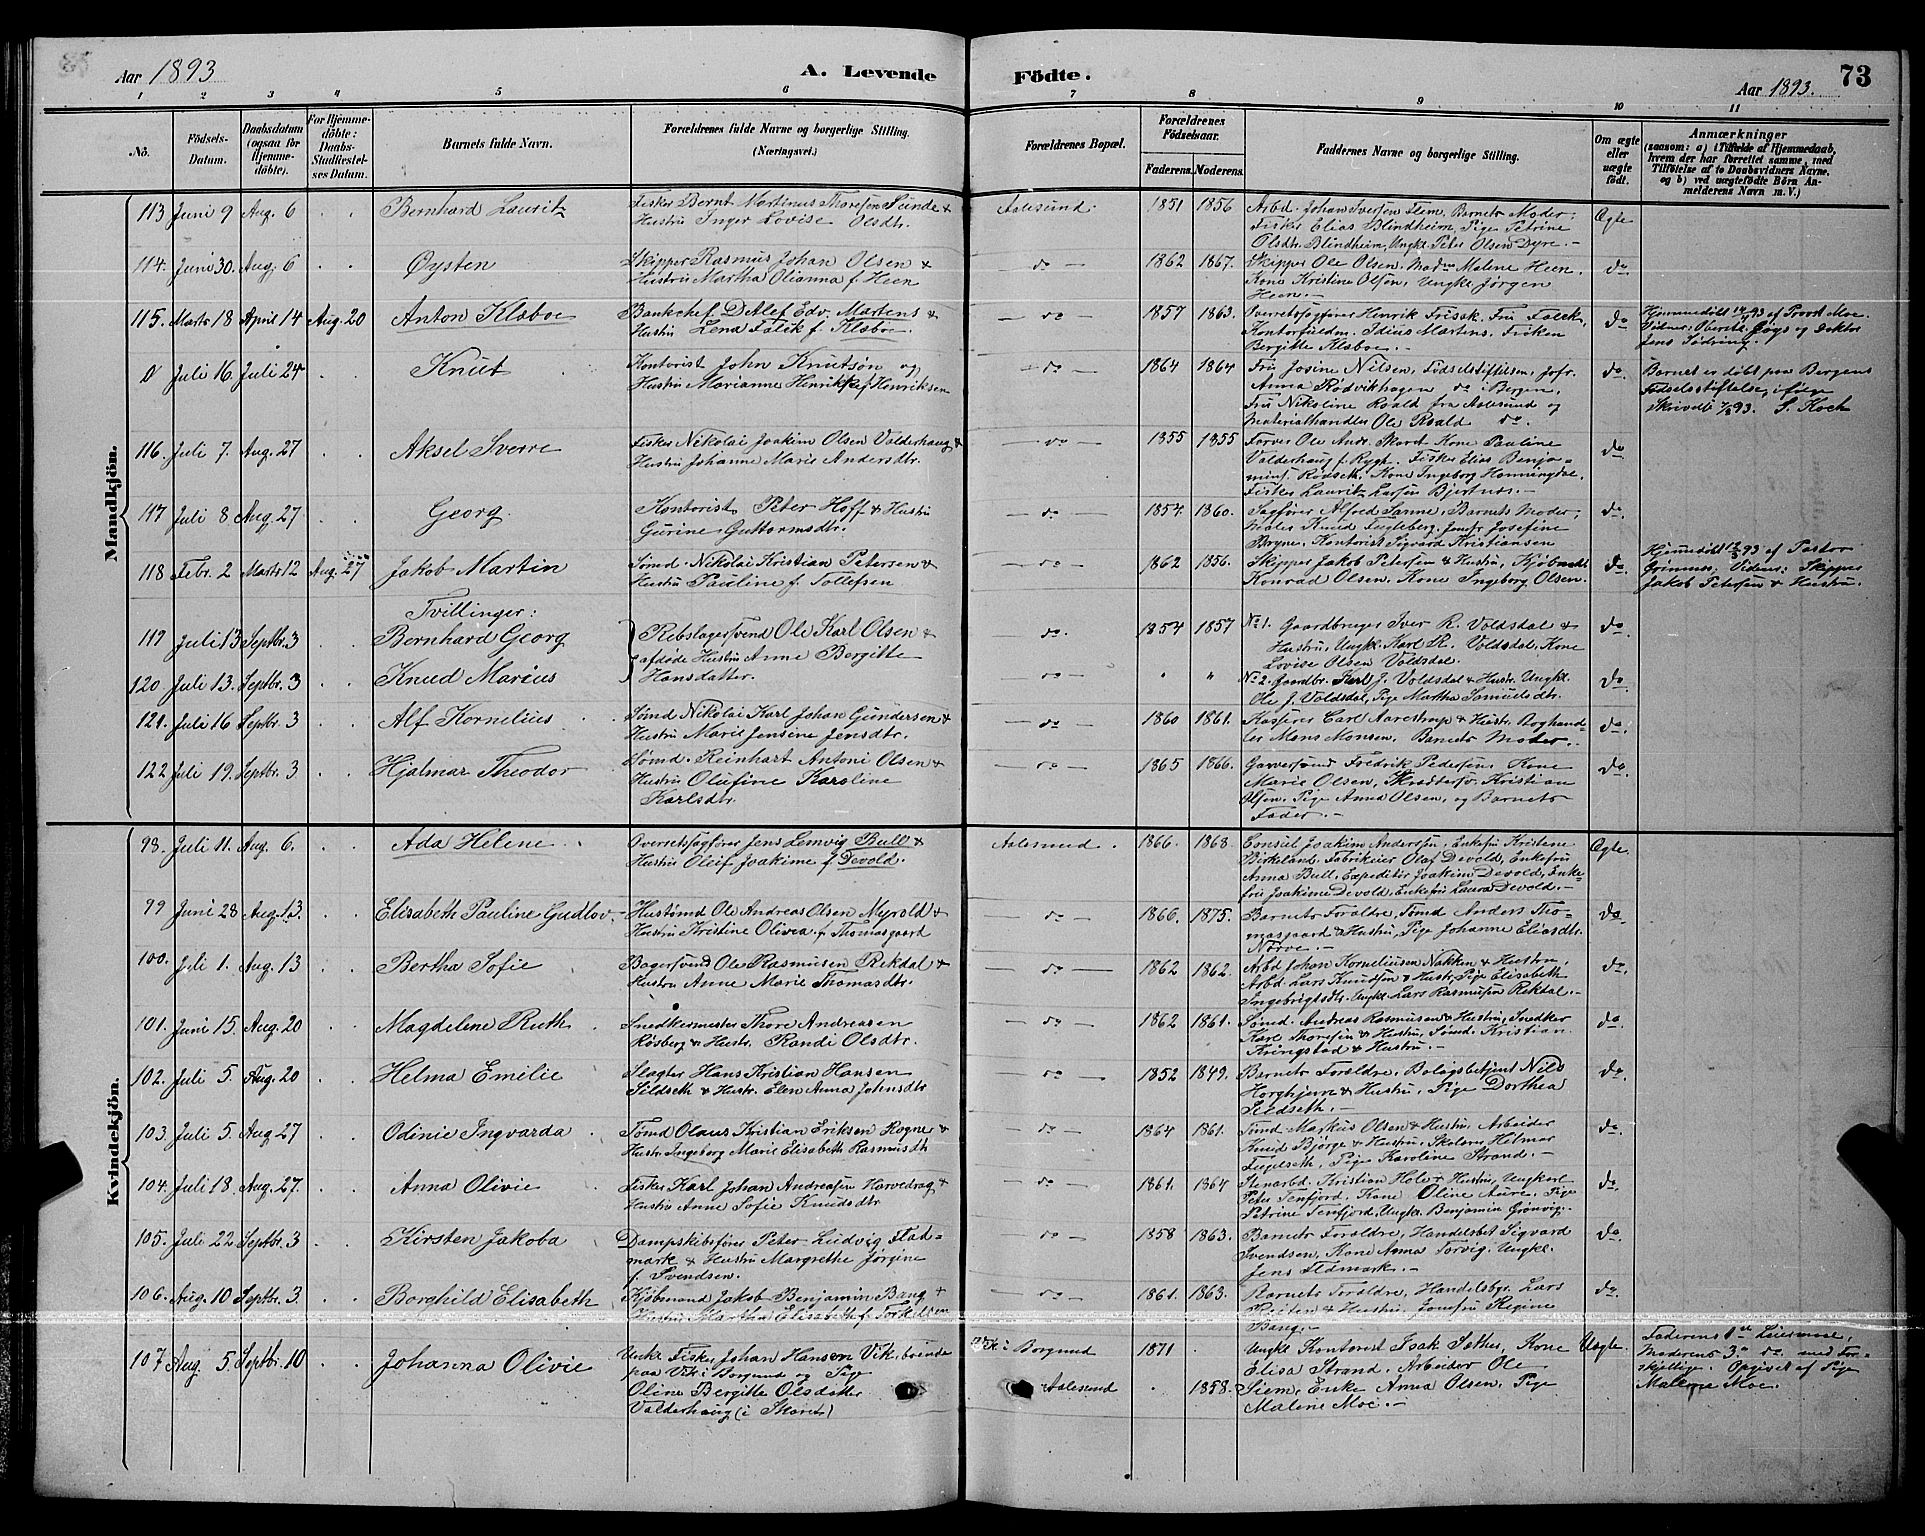 Aar 1893
A. Levende
Födte.
Aar 1893.
73
1 2 3 4 5 6 7 8 9 10 11
No.
Födsels-
Datum.
Daabsdatum
(ogsaa for
Hjemme-
döbte).
For Hjemme-
döbte:
Daabs-
Stadfæstel-
ses Datum.
Barnets fulde Navn.
Forældrenes fulde Navne og borgerlige Stilling.
(Næringsvei.)
Forældrenes Bopæl.
Forældrenes
Födselsaar.
Faderens. Moderens.
Faddernes Navne og borgerlige Stilling.
Om ægte
eller
uægte
födt.
Anmærkninger
(saasom: a) i Tilfælde af Hjemmedaab,
hvem der har forrettet samme, med
Tilföielse af to Daabsvidners Navne,
og b) ved uægtefödte Börn An-
melderens Navn m. V.)
Mandkjön.
113 Juni 9 Aug. 6 Bernhard Lauritz
Fisker Bernt Martinus Thoresen Sunde &
Hustru Inger Lovise Olsdtr.
Aalesund. 1851 1856
Arbd. Johan Iversen Flem, Barnets Moder,
Fisker Elias Blindheim, Pige Petrine
Olsdtr. Blindheim, Ungk. Peter Olsen Dyre.
Ægte
114. Juni 30. Aug. 6 Øysten
Skipper Rasmus Johan Olsen &
Hustru Martha Olianna f. Heen
do 1862 1867.
Skipper Ole Olsen, Malene Heen,
Kone Kristine Olsen, Ungk. Jørgen
Heen.
do
115. Marts 18 April 14 Aug. 20 Anton Klaboe
Bankchef Detlef Edv. Martens &
Hustru Lena Falik f. Klaboe.
do 1857 1863.
Overretssagfører Henrik Frissk, Fru Falck,
Kontorfuldm. Idius Martens, Frøken
Bergitte Klaboe.
do
Hjemmedöbt 14/4 93 af Provst Moe.
Vidner: Oberstl. Gogs og Doktor
Jens Sødring.
0 Juli 16 Juli 24 Knut
Kontorist John Knutsøn og
Hustru Marianne Henrikke f. Henriksen
do 1864 1864
Fru Josine Nilsen, Födselsstiftelsen, Jofr.
Anna Rødvikhagen do i Bergen,
Fru Nikoline Roald fra Aalesund og
Materialhandler Ole Roald do.
do.
Barnet er döbt paa Bergens
Födselsstiftelse, ifølge
Skrivelse 7/8 93. S. Koch
116. Juli 7. Aug. 27 Aksel Sverre
Fisker Nikolai Joakim Olsen Valderhaug &
Hustru Johanne Marie Andersdtr.
do 1855 1855
Farver Ole Andr. Skaret, Kone Pauline
Valderhaug f. Rygh, Fisker Elias Benja-
mins. Rødseth, Kone Ingeborg Honningdal,
Fisker Lauritz Larsen Bjertnes.
do
117 Juli 8 Aug. 27 Georg.
Kontorist Peter Hoff & Hustru
Gurine Guttormsdtr.
do 1854. 1860.
Sagfører Alfred Sanne, Barnets Moder,
Maler Knud Fugleberg, Jomfr. Josefine
Bryne, Kontorist Sigvard Kristiansen
do.
118 Febr. 2 Marts 12 Aug. 27 Jakob Martin
Sømd Nikolai Kristian Petersen &
Hustru Pauline f. Tollefsen
do 1862 1856.
Skipper Jakob Petersen & Hustru, Kjøbmd.
Konrad Olsen, Kone Ingeborg Olsen.
do.
Hjemmedöbt 12/3 93 af Pastor
Grimnes; Vidner: Skipper
Jakob Petersen & Hustru.
Tvillinger:
119 Juli 13 Septbr. 3 Bernhard Georg
Rebslagersvend Ole Karl Olsen &
afdøde Hustru Anne Bergitte
Hansdatter.
do. 1854 1857
No 1. Gaardbruger Iver R. Voldsdal &
Hustru, Ungk. Karl R. Voldsdal, Kone
Lovise Olsen Voldsdal.
do
120 Juli 13. Septbr. 3 Knud Marius
do " "
No 2. Gaardbr. Karl J. Voldsdal & Hustr. Ungkl.
Ole J. Voldsdal, Pige Martha Samuelsdtr.
do
121. Juli 16 Septbr. 3 Alf Kornelius
Sømd Nikolai Karl Johan Gundersen &
Hustru Marie Jensine Jensdtr.
do 1860 1861.
Kasserer Carl Aarestrup & Hustr. Boghand-
ler Mons Monsen, Barnets Moder.
do.
122 Juli 19. Septbr. 3 Hjalmar Theodor
Sømd. Reinhart Antoni Olsen &
Hustru Olufine Karoline
Karlsdtr.
do 1865 1866.
Garversvend Fredrik Pedersen, Kone
Marie Olsen, Skræddersv. Kristian
Olsen, Pige Anna Olsen, og Barnets
Fader.
do
Kvindekjön.
98. Juli 11. Aug. 6. Ada Helene
Overretssagfører Jens Lemvig Bull &
Hustru Oleif Joakime f. Devold.
Aalesund. 1866. 1868
Consul Joakim Andersen, Enkefru Kristine
Birkeland, Fabrikeier Olaf Devold, Enkefru
Anna Bull, Expeditør Joakim Devold, Enke-
fru Joakime Devold, Enkefru Laura Devold.
Ægte.
99 Juni 28 Aug. 13. Elisabeth Pauline Gudlov.
Hustømd Ole Andreas Olsen Myrold &
Hustru Kristine Olivia f. Thomasgaard
do 1866. 1875.
Barnets Forældre, Tømd Anders Tho-
masgaard & Hustru, Pige Johanne Eliasdtr.
Nørve.
do
100. Juli 1. Aug. 13 Bertha Sofie
Bagersvend Ole Rasmusen Rekdal &
Hustru Anne Marie Thomasdtr.
do 1862 1862.
Arbd Johan Korneliusen Nakken & Hustru,
Arbd. Lars Knudsen & Hustr, Pige Elisabeth
Ingebrigtsdtr. Ungkl. Lars Rasmusen Rekdal.
do.
101. Juni 15. Aug. 20 Magdelene Ruth
Snedkermester Thore Andreasen
Røsberg & Hustr. Randi Olsdtr.
do 1862 1861.
Sømd. Andreas Rasmusen & Hustru, Snedker
Karl Thoresen & Hustru, Sømd. Kristian
Kringstad & Hustru.
do
102. Juli 5. Aug. 20 Helma Emilie
Slagter Hans Kristian Hansen
Sildseth & Hustr. Elen Anna Johnsdtr
do 1852 1849.
Barnets Forældre, Bolagsbetjent Nils
Horghjem & Hustru, Pige Dorthea
Sildseth.
do.
103. Juli 5. Aug. 27 Odinie Ingvarda
Tømd Olaus Kristian Eriksen Rogne &
Hustr. Ingeborg Marie Elisabeth Rasmusdtr
do 1864 1861.
Tømd Markus Olsen & Hustru, Arbeider
Knud Bjørge & Hustru, Skolærer Hilmar
Fugelseth, Pige Karoline Strand.
do
104. Juli 18. Aug. 27. Anna Olivie
Fisker Karl Johan Andreasen Harvedrag &
Hustru Anne Sofie Knudsdtr
do 1861. 1864
Stenarbd. Kristian Holer Hustru, Ungkarl
Peter Tenfjord, Kone Oline Aure, Pige
Petrine Tenfjord, Ungkr. Benjamin Grønvig.
do
105. Juli 22 Septbr. 3 Kirsten Jakoba
Dampskibsfører Peter Ludvig Flad-
mark & Hustru Margrethe Jørgine
f. Svendsen.
do 1858 1863.
Barnets Forældre, Handelsbet Sigvard
Svendsen, Kone Anna Torvig, Ungkl.
Jens Fladmark.
do
106. Aug. 10 Septbr. 3. Borghild Elisabeth
Kjøbmand Jakob Benjamin Bang &
Hustru Martha Elisabeth f. Torkildsen
do 1861. 1863.
Barnets Forældre, Handelsbgr. Lars
Reiten & Hustru, Jomfru Regine
Bang.
do.
107 Aug. 5 Septbr. 10 Johanna Olivie
Ungkr Fisker Johan Hansen Vik, boende
paa Vik i Borgund og Pige
Oline Bergitte Olsdatter
Valderhaug (i Skaret)
Vik i Borgund 1871
Aalesund 1858.
Ungkl Kontorist Isak Sæther, Kone
Elisa Strand, Arbeider Ole
Siem, Enke Anna Olsen, Pige
Malene Moe.
Uægte.
Faderens 1ste Leiermaal,
Moderens 3die do. med For-
skjellige. Opgivet af Pige
Malene Moe.